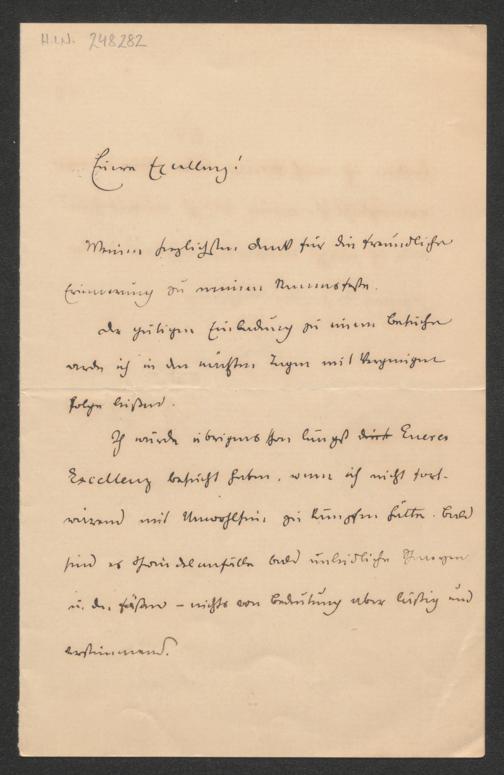 H.I.N. 248282
Euere Excellenz!
Meinen herzlichsten Dank für die freundliche
Erinnerung zu meinem Namensfeste.
Der gütigen Einladung zu einem Besuche
werde ich in den nächsten Tagen mit Vergnügen
folge leisten.
Ich würde übrigens schon längst Euere
Excellenz besucht haben, wenn ich nicht fort-
während mit Unwohlsein zu kämpfen hätte. Bald
sind es Schwindelanfälle bald unleidliche
in den Füßen – nichts von Bedeutung aber lästig und
verstimmend.